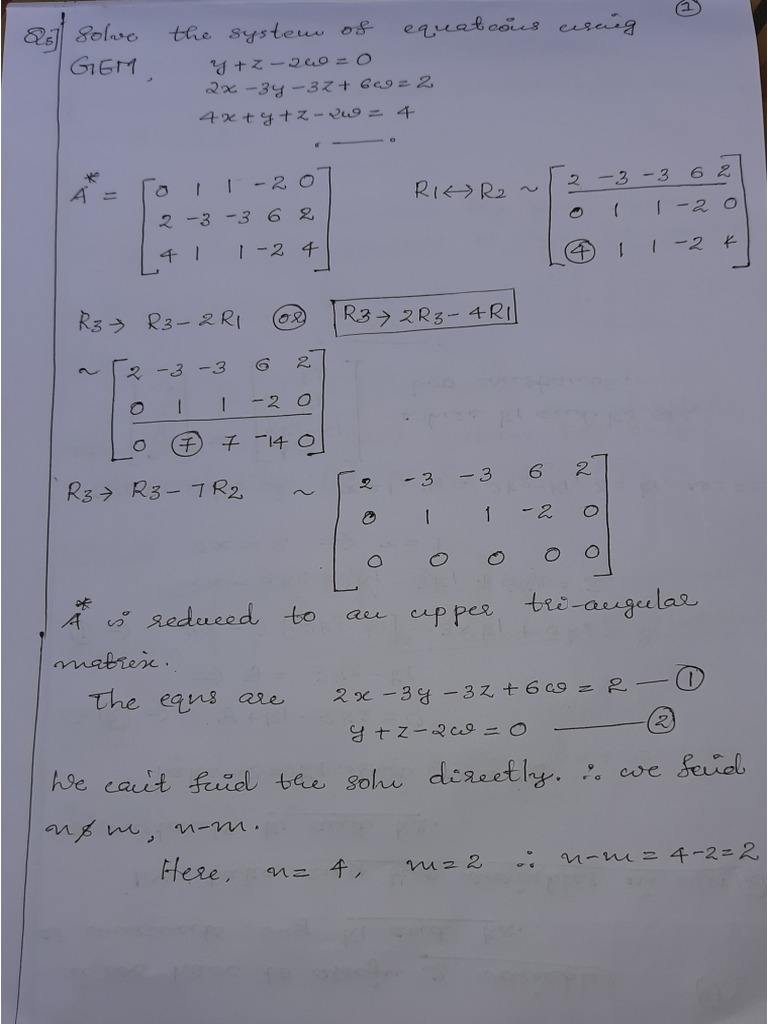 ①
Q5] Solve the system of equations using
GEM, y+z-2ω=0
2x-3y-3z+6ω=2
4x+y+z-2ω=4
A* = [0 1 1 -2 0
2 -3 -3 6 2
4 1 1 -2 4]
R1↔R2 ~ [2 -3 -3 6 2
0 1 1 -2 0
④ 1 1 -2 4]
R3→ R3-2R1 OR R3→2R3-4R1
~ [2 -3 -3 6 2
0 1 1 -2 0
0 ⑦ 7 -14 0]
R3→ R3-7R2 ~ [2 -3 -3 6 2
0 1 1 -2 0
0 0 0 0 0]
A* is reduced to an upper tri-angular
matrix.
The eqns are 2x-3y-3z+6ω=2 — ①
y+z-2ω=0 — ②
We can't find the soln directly. ∴ we find
n & m, n-m.
Here, n=4, m=2 ∴ n-m=4-2=2